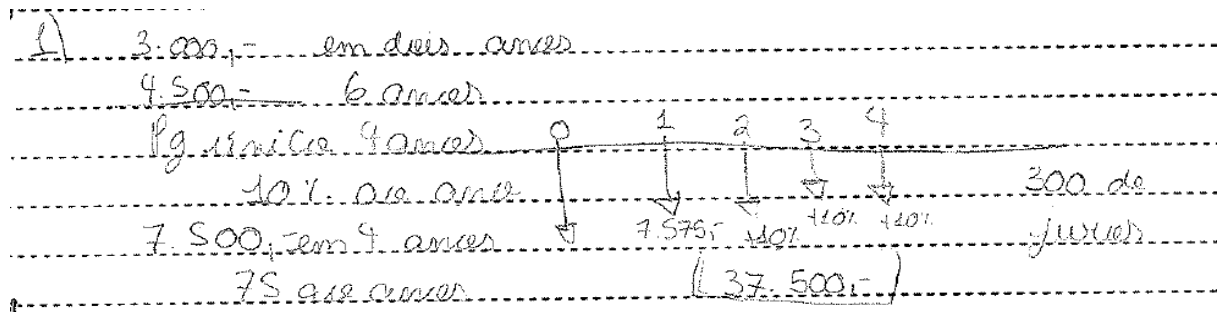 1) 3.000,- em dois anos
4.500,- 6 anos
Pg único 4 anos 0 1 2 3 4
10% ao ano 300 de
7.500,- em 4 anos 7.575,- +10% +10% +10% juros
75 ao ano (37.500,-)